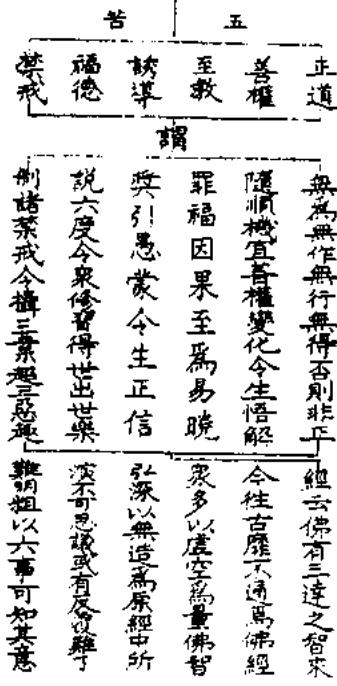 五苦
正道
善權
至教
誘導
福德
禁戒
謂
無為無作無行無得否則非正
隨順機宜善權變化令生悟解
罪福因果至為易曉
奬引愚蒙令生正信
說六度令衆修習得世出世樂
制諸禁戒令攝三業離三惡趣
經云佛有三達之智來
今往古靡不通焉佛經
衆多以虛空為量佛智
弘深以無造為原經中所
演不可思議或有反復難了
難明粗以六事可知其意